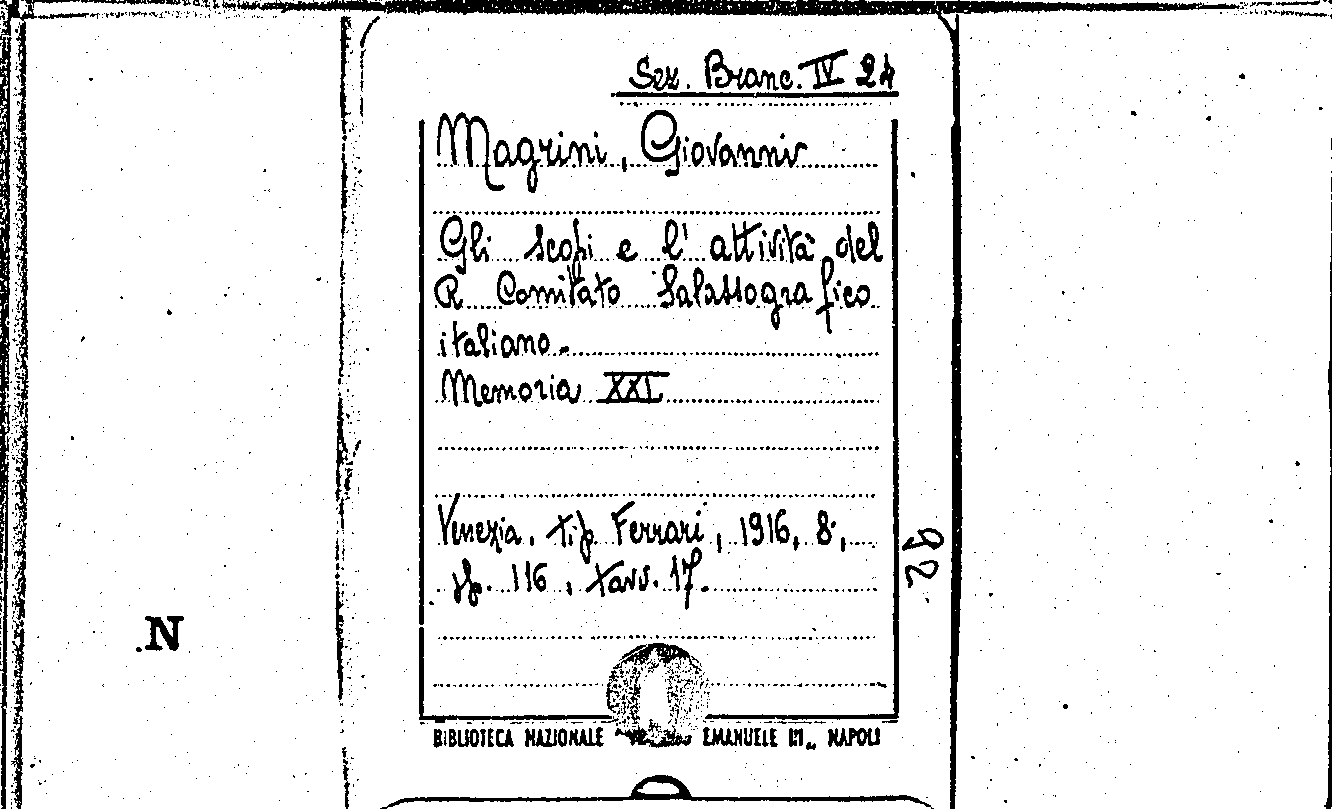 Sez. Branc. IV 24
Magrini, Giovanni
Gli scopi e l'attività del
R Comitato Talassografico
italiano.
Memoria XXI
Venezia. tip Ferrari, 1916, 8°,
pp. 116, tavv. 17.
92
N
BIBLIOTECA NAZIONALE EMANUELE III„ NAPOLI